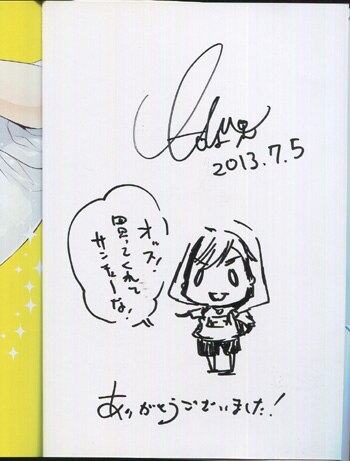 2013.7.5
オッス!
買ってくれて
サンキューな!
ありがとうございました!